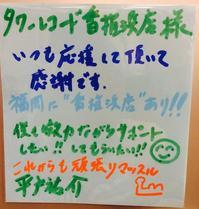 タワーレコード香椎浜店様
いつも応援して頂いて
感謝です。
福岡に"香椎浜店"あり!!
僕も微力ながらサポート
したい!! してもらいたい!!
これからも頑張りマッスル
平戸祐介